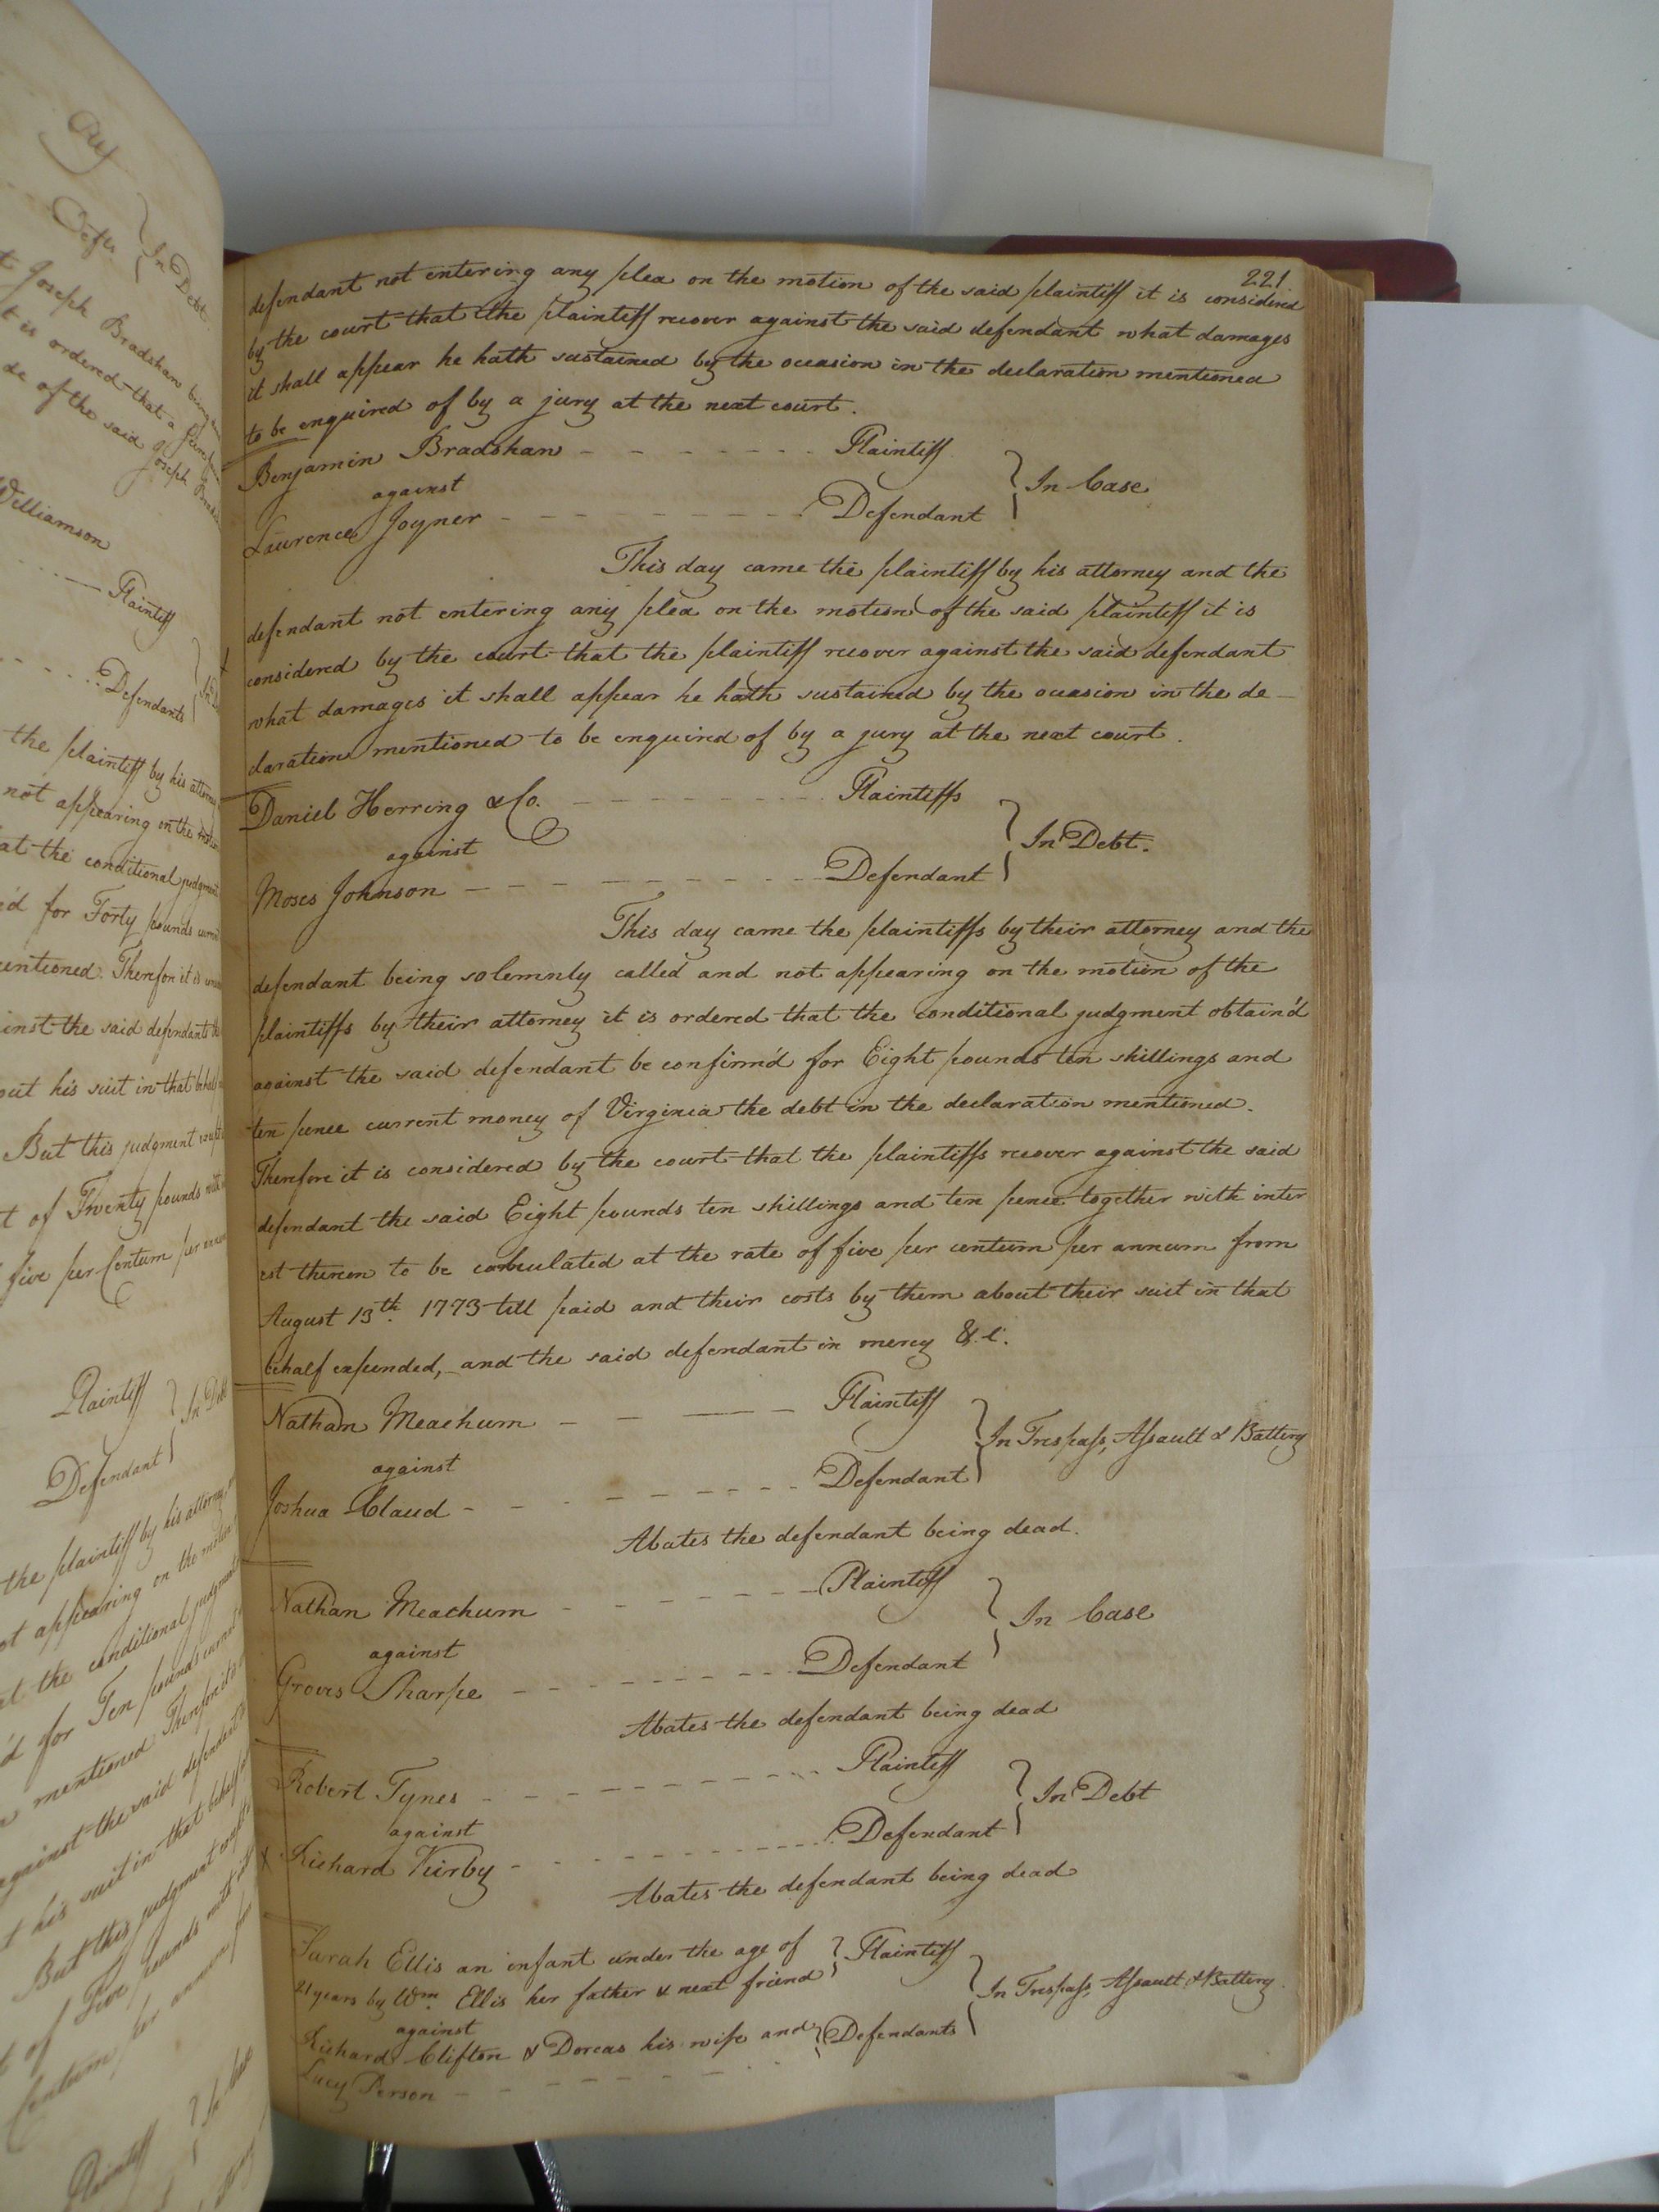 Ptf
Defts } In Debt
t Joseph Bradshaw being
t is ordered that a
de of the said Joseph
Williamson
Plaintiff
Defendants
the plaintiff by his attorney
not appearing on the motion
at the conditional judgment
'd for Forty pounds
mentioned. Therefore it is
inst the said defendants
out his suit in that behalf
But this judgment
t of Twenty pounds with
five per Centum per
Plaintiff } In Debt
Defendant
the plaintiff by his attorney
ot appearing on the motion
at the conditional judgment
'd for Ten pounds current
mentioned Therefore it is
against the said defendant
t his suit in that behalf
But this judgment
t of Five pounds with
Centum per annum from
Plaintiff } In Case
attorney
221
defendant not entering any plea on the motion of the said plaintiff it is considered
by the court that the plaintiff recover against the said defendant what damages
it shall appear he hath sustained by the occasion in the declaration mentioned
to be enquired of by a jury at the next court.
Benjamin Bradshaw - - - - - - - Plaintiff
against } In Case
Laurence Joyner - - - - - - - - - - Defendant
This day came the plaintiff by his attorney and the
defendant not entering any plea on the motion of the said plaintiff it is
considered by the court that the plaintiff recover against the said defendant
what damages it shall appear he hath sustained by the occasion in the de-
claration mentioned to be enquired of by a jury at the next court.
Daniel Herring & Co. - - - - - - - - - Plaintiffs
against } In Debt.
Moses Johnson - - - - - - - - - - Defendant
This day came the plaintiffs by their attorney and the
defendant being solemnly called and not appearing on the motion of the
plaintiffs by their attorney it is ordered that the conditional judgment obtain'd
against the said defendant be confirm'd for Eight pounds ten shillings and
ten pence current money of Virginia the debt in the declaration mentioned.
Therefore it is considered by the court that the plaintiffs recover against the said
defendant the said Eight pounds ten shillings and ten pence together with inter
est thereon to be calculated at the rate of five per centum per annum from
August 13th. 1773 till paid and their costs by them about their suit in that
behalf expended, and the said defendant in mercy &c.
Nathan Meachum - - - - Plaintiff
against } In Trespass, Assault & Battery
Joshua Claud - - - - - - - - - Defendant
Abates the defendant being dead.
Nathan Meachum - - - - - - - Plaintiff
against } In Case
Groves Sharpe - - - - - - - - - Defendant
Abates the defendant being dead
Robert Tynes - - - - - - - - - - Plaintiff
against } In Debt
x Richard Kirby - - - - - - - - - - Defendant
Abates the defendant being dead
Sarah Ellis an infant under the age of } Plaintiff
21 years by Wm. Ellis her father & next friend
against } In Trespass, Assault & Battery
Richard Clifton & Dorcas his wife and } Defendants
Lucy Person - - - - - - -